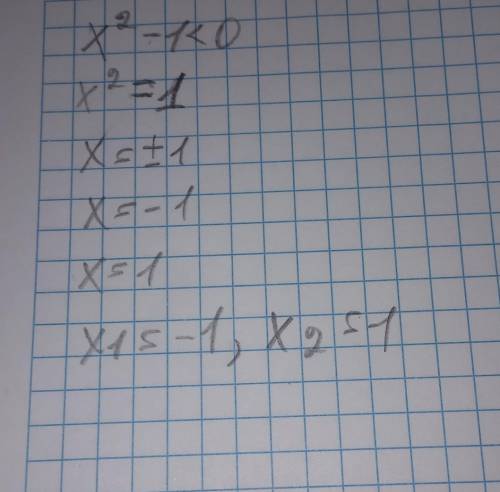 x² - 1 < 0
x² = 1
x = ± 1
x = - 1
x = 1
x1 = -1, x2 = 1